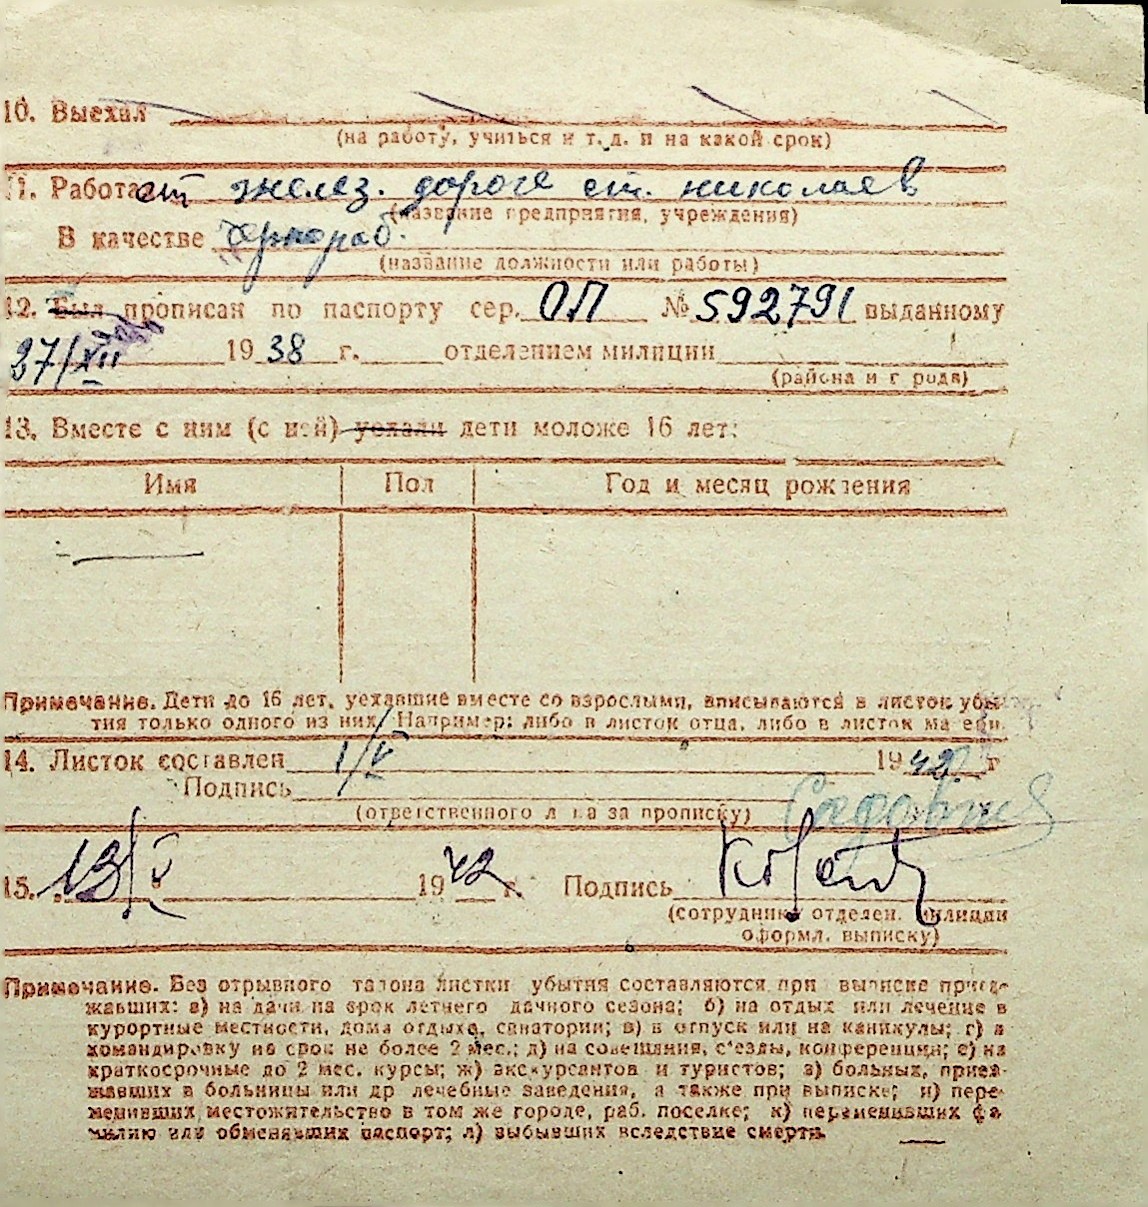 10. Выехал
(на работу, учиться и т. д. и на какой срок)
11. Работает желез. дороге ст. николаев
(название предприятия, учреждения)
В качестве чернораб.
(название должности или работы)
12. Был прописан по паспорту сер. ОП № 592791 выданному
27/XII 1938 г. отделением милиции
(района и города)
13. Вместе с ним (с ней) уехали дети моложе 16 лет:
Имя Пол Год и месяц рождения
Примечание. Дети до 16 лет, уехавшие вместе со взрослыми, вписываются в листок убы-
тия только одного из них. Например: либо в листок отца, либо в листок матери.
14. Листок составлен 1/V 1942 г
Подпись
(ответственного лица за прописку)
15. 13/V 1942 г. Подпись
(сотрудник отделен. милиции
оформл. выписку)
Примечание. Без отрывного талона листки убытия составляются при выписке приез-
жавших: а) на дачи на срок летнего дачного сезона; б) на отдых или лечение в
курортные местности, дома отдыха, санатории; в) в отпуск или на каникулы; г) в
командировку на срок не более 2 мес.; д) на совещания, с'езды, конференции; е) на
краткосрочные до 2 мес. курсы; ж) экскурсантов и туристов; з) больных, приез-
жавших в больницы или др лечебные заведения, а также при выписке; и) пере-
менивших местожительство в том же городе, раб. поселке; к) переменивших фа-
милию или обменявших паспорт; л) выбывших вследствие смерти.